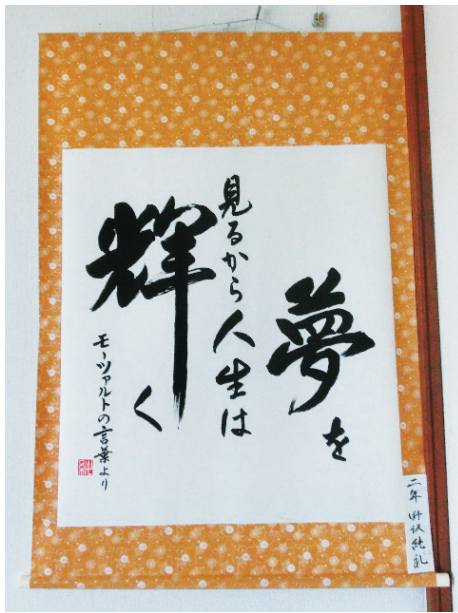 夢を
見るから人生は
輝く
モーツァルトの言葉より
二年